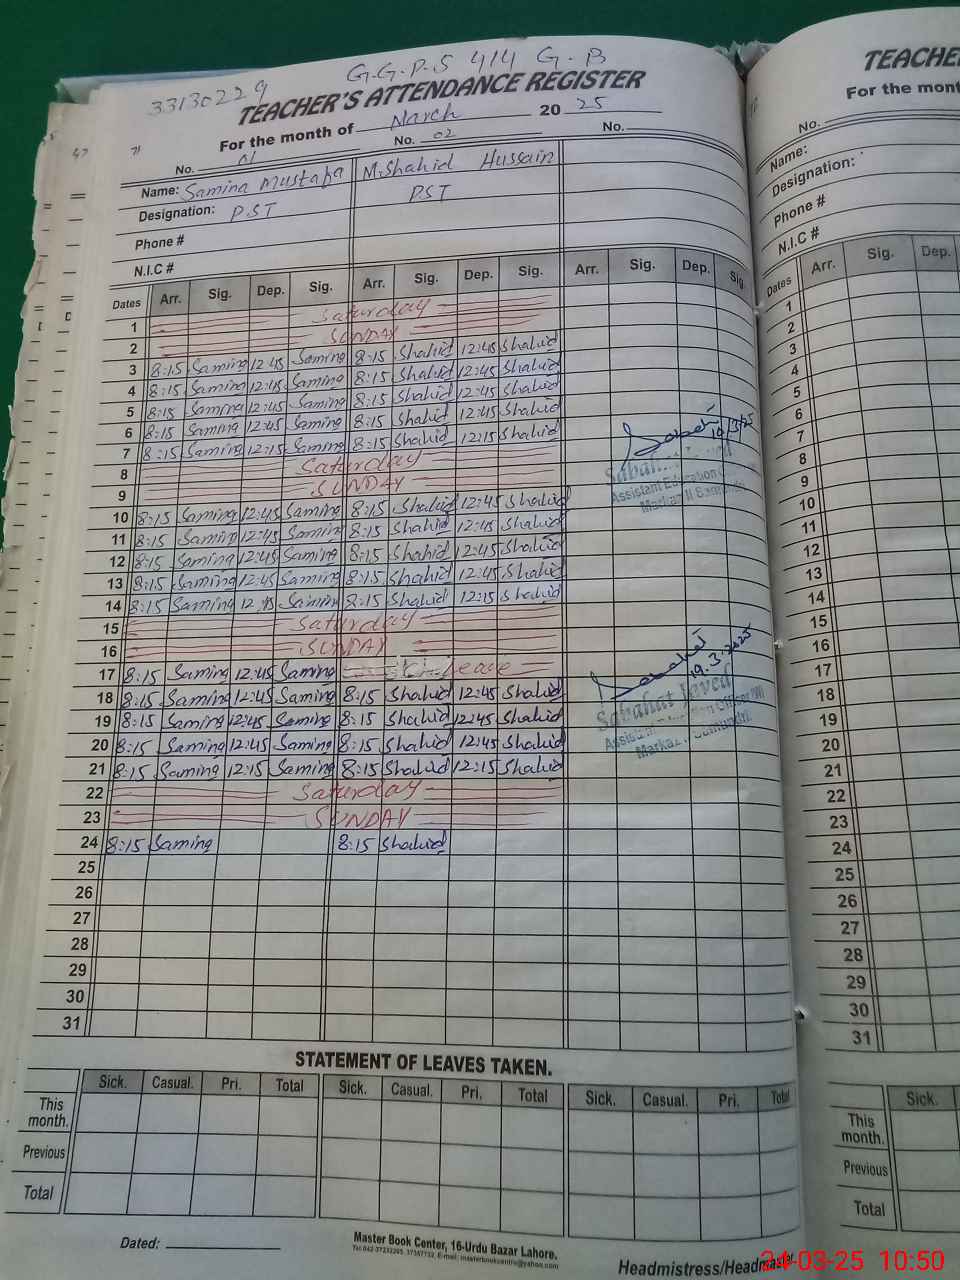 G.G.P.S 414 G.B
33130229
TEACHER'S ATTENDANCE REGISTER
For the month of March 20 25
No. 01 No. 02 No.
Name: Samina Mustafa M.Shahid Hussain
Designation: P.ST P.ST
Phone #
N.I.C #
Dates Arr. Sig. Dep. Sig. Arr. Sig. Dep. Sig. Arr. Sig. Dep. Sig.
1 Saturday
2 SUNDAY
3 8:15 Samina 12:45 Samina 8:15 Shahid 12:45 Shahid
4 8:15 Samina 12:45 Samina 8:15 Shahid 12:45 Shahid
5 8:15 Samina 12:45 Samina 8:15 Shahid 12:45 Shahid
6 8:15 Samina 12:45 Samina 8:15 Shahid 12:45 Shahid
7 8:15 Samina 12:15 Samina 8:15 Shahid 12:15 Shahid
8 Saturday
9 SUNDAY
10 8:15 Samina 12:45 Samina 8:15 Shahid 12:45 Shahid
11 8:15 Samina 12:45 Samina 8:15 Shahid 12:45 Shahid
12 8:15 Samina 12:45 Samina 8:15 Shahid 12:45 Shahid
13 8:15 Samina 12:45 Samina 8:15 Shahid 12:45 Shahid
14 8:15 Samina 12:15 Samina 8:15 Shahid 12:15 Shahid
15 Saturday
16 SUNDAY
17 8:15 Samina 12:45 Samina Leave
18 8:15 Samina 12:45 Samina 8:15 Shahid 12:45 Shahid
19 8:15 Samina 12:45 Samina 8:15 Shahid 12:45 Shahid
20 8:15 Samina 12:45 Samina 8:15 Shahid 12:45 Shahid
21 8:15 Samina 12:15 Samina 8:15 Shahid 12:15 Shahid
22 Saturday
23 SUNDAY
24 8:15 Samina 8:15 Shahid
25
26
27
28
29
30
31
Sabahat
10/3/25
Assistant Education
Sabahat
19.3.2025
Sabahat Javed
Assistant Education Officer (W)
STATEMENT OF LEAVES TAKEN.
Sick. Casual. Pri. Total Sick. Casual. Pri. Total Sick. Casual. Pri. Total
This month.
Previous
Total
Dated:
Master Book Center, 16-Urdu Bazar Lahore.
Headmistress/Headmaster
TEACHE
For the mont
No.
Name:
Designation:
Phone #
N.I.C #
Dates Arr. Sig. Dep.
1
2
3
4
5
6
7
8
9
10
11
12
13
14
15
16
17
18
19
20
21
22
23
24
25
26
27
28
29
30
31
Sick.
This month.
Previous
Total
24-03-25 10:50